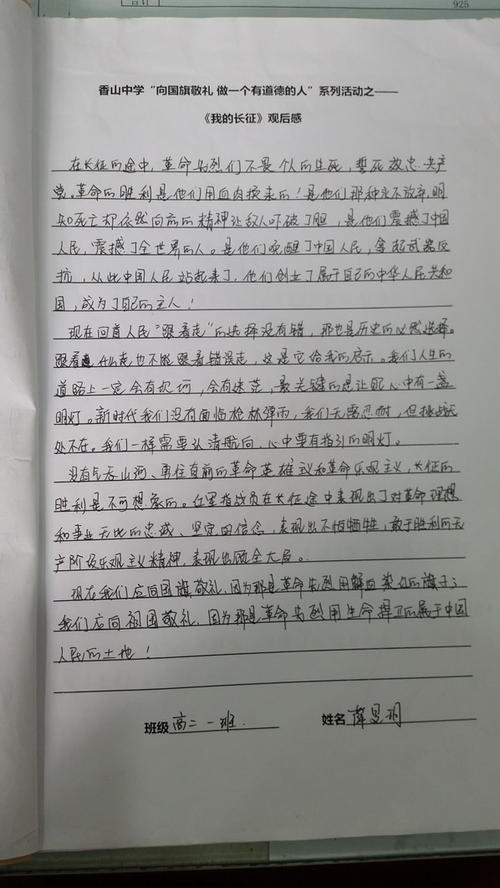 合计
925
香山中学“向国旗敬礼 做一个有道德的人”系列活动之——
《我的长征》观后感
在长征的途中，革命先烈们不畏个人的生死，誓死效忠共产
党。革命的胜利是他们用血肉换来的！是他们那种永不放弃，明
知死亡却依然向前的精神让敌人吓破了胆，是他们震撼了中国
人民，震撼了全世界的人。是他们唤醒了中国人民，拿起武器反
抗，从此中国人民站起来了，他们创立了属于自己的中华人民共和
国，成为了自己的主人！
现在回首人民“跟着走”的选择没有错，那也是历史的必然选择。
跟着什么走也不能跟着错误走，这是它给我的启示。我们人生的
道路上一定会有坎坷，会有迷茫，最关键的是让自己心中有一盏
明灯。新时代我们没有面临枪林弹雨，我们无需忍耐，但挑战无
处不在。我们一样需要认清航向，心中要有指引的明灯。
没有气吞山河、勇往直前的革命英雄主义和革命乐观主义，长征的
胜利是不可想象的。红军指战员在长征途中表现出了对革命理想
和事业无比的忠诚、坚定的信念，表现出不怕牺牲，敢于胜利的无
产阶级乐观主义精神，表现出顾全大局。
现在我们应向国旗敬礼，因为那是革命先烈用鲜血染红的旗子；
我们应向祖国敬礼，因为那是革命先烈用生命捍卫的属于中国
人民的土地！
班级 高二一班 姓名 薛